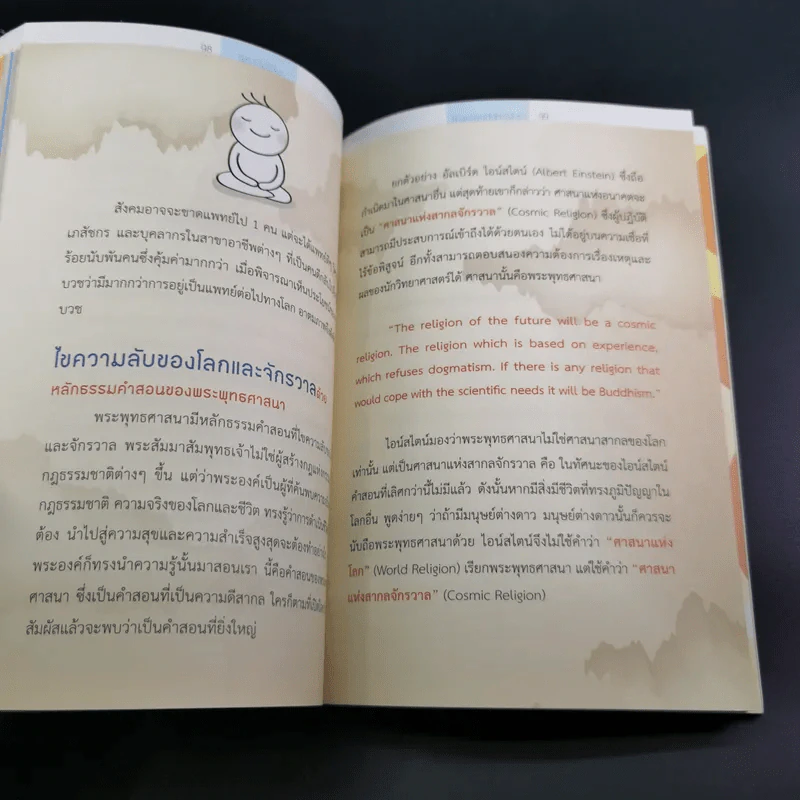 98
สังคมอาจจะขาดแพทย์ไป 1 คน แต่จะได้แพทย์อีก
เภสัชกร และบุคลากรในสาขาอาชีพต่างๆ ที่เป็นคนดี
ร้อยนับพันคนซึ่งคุ้มค่ามากกว่า เมื่อพิจารณาเห็นประโยชน์
บวชว่ามีมากกว่าการอยู่เป็นแพทย์ต่อไปทางโลก อาตมภาพ
บวช
ไขความลับของโลกและจักรวาลด้วย
หลักธรรมคำสอนของพระพุทธศาสนา
พระพุทธศาสนามีหลักธรรมคำสอนที่ไขความลับ
และจักรวาล พระสัมมาสัมพุทธเจ้าไม่ใช่ผู้สร้างกฎแห่ง
กฎธรรมชาติต่างๆ ขึ้น แต่ว่าพระองค์เป็นผู้ที่ค้นพบความ
กฎธรรมชาติ ความจริงของโลกและชีวิต ทรงรู้ว่าการดำเนินชีวิต
ต้อง นำไปสู่ความสุขและความสำเร็จสูงสุดจะต้องทำอย่าง
พระองค์ก็ทรงนำความรู้นั้นมาสอนเรา นี้คือคำสอนของ
ศาสนา ซึ่งเป็นคำสอนที่เป็นความดีสากล ใครก็ตามที่
สัมผัสแล้วจะพบว่าเป็นคำสอนที่ยิ่งใหญ่
99
ยกตัวอย่าง อัลเบิร์ต ไอน์สไตน์ (Albert Einstein) ซึ่งถือ
กำเนิดมาในศาสนาอื่น แต่สุดท้ายเขาก็กล่าวว่า ศาสนาแห่งอนาคตจะ
เป็น “ศาสนาแห่งสากลจักรวาล” (Cosmic Religion) ซึ่งผู้ปฏิบัติ
สามารถมีประสบการณ์เข้าถึงได้ด้วยตนเอง ไม่ได้อยู่บนความเชื่อที่
ไร้ข้อพิสูจน์ อีกทั้งสามารถตอบสนองความต้องการเรื่องเหตุและ
ผลของนักวิทยาศาสตร์ได้ ศาสนานั้นคือพระพุทธศาสนา
“The religion of the future will be a cosmic
religion. The religion which is based on experience,
which refuses dogmatism. If there is any religion that
would cope with the scientific needs it will be Buddhism.”
ไอน์สไตน์มองว่าพระพุทธศาสนาไม่ใช่ศาสนาสากลของโลก
เท่านั้น แต่เป็นศาสนาแห่งสากลจักรวาล คือ ในทัศนะของไอน์สไตน์
คำสอนที่เลิศกว่านี้ไม่มีแล้ว ดังนั้นหากมีสิ่งมีชีวิตที่ทรงภูมิปัญญาใน
โลกอื่น พูดง่ายๆ ว่าถ้ามีมนุษย์ต่างดาว มนุษย์ต่างดาวนั้นก็ควรจะ
นับถือพระพุทธศาสนาด้วย ไอน์สไตน์จึงไม่ใช้คำว่า “ศาสนาแห่ง
โลก” (World Religion) เรียกพระพุทธศาสนา แต่ใช้คำว่า “ศาสนา
แห่งสากลจักรวาล” (Cosmic Religion)